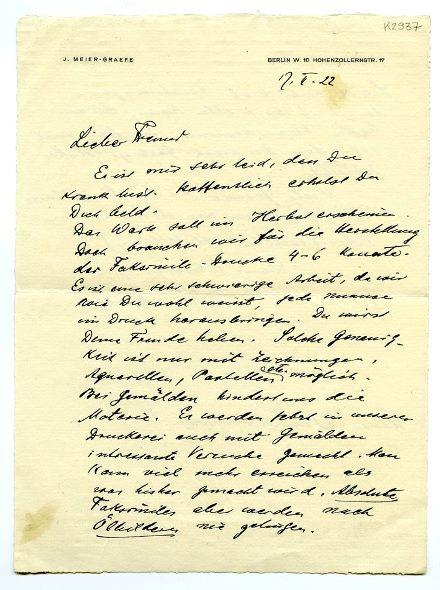 K2937
J. MEIER-GRAEFE BERLIN W. 10 HOHENZOLLERNSTR. 17
17. V. 22
Lieber Freund
Es ist mir sehr leid, dass Du
krank bist. Hoffentlich erholst Du
Dich bald.
Das Werk soll im Herbst erscheinen.
Doch brauchen wir für die Herstellung
der Faksimile-Drucke 4-6 Monate.
Es ist eine sehr schwierige Arbeit, da wir
wie Du wohl weisst, jede nuance
im Druck herausbringen. Du wirst
Deine Freude haben. Solche Genauig-
keit ist nur mit Zeichnungen,
Aquarellen, Pastellen etc. möglich.
Bei Gemälden hindert uns die
Materie. Es werden jetzt in unserer
Druckerei auch mit Gemälden
interessante Versuche gemacht. Man
kann viel mehr erreichen als
was bisher gemacht wird. Absolute
Faksimiles aber werden nach
Ölbildern nie gelingen.